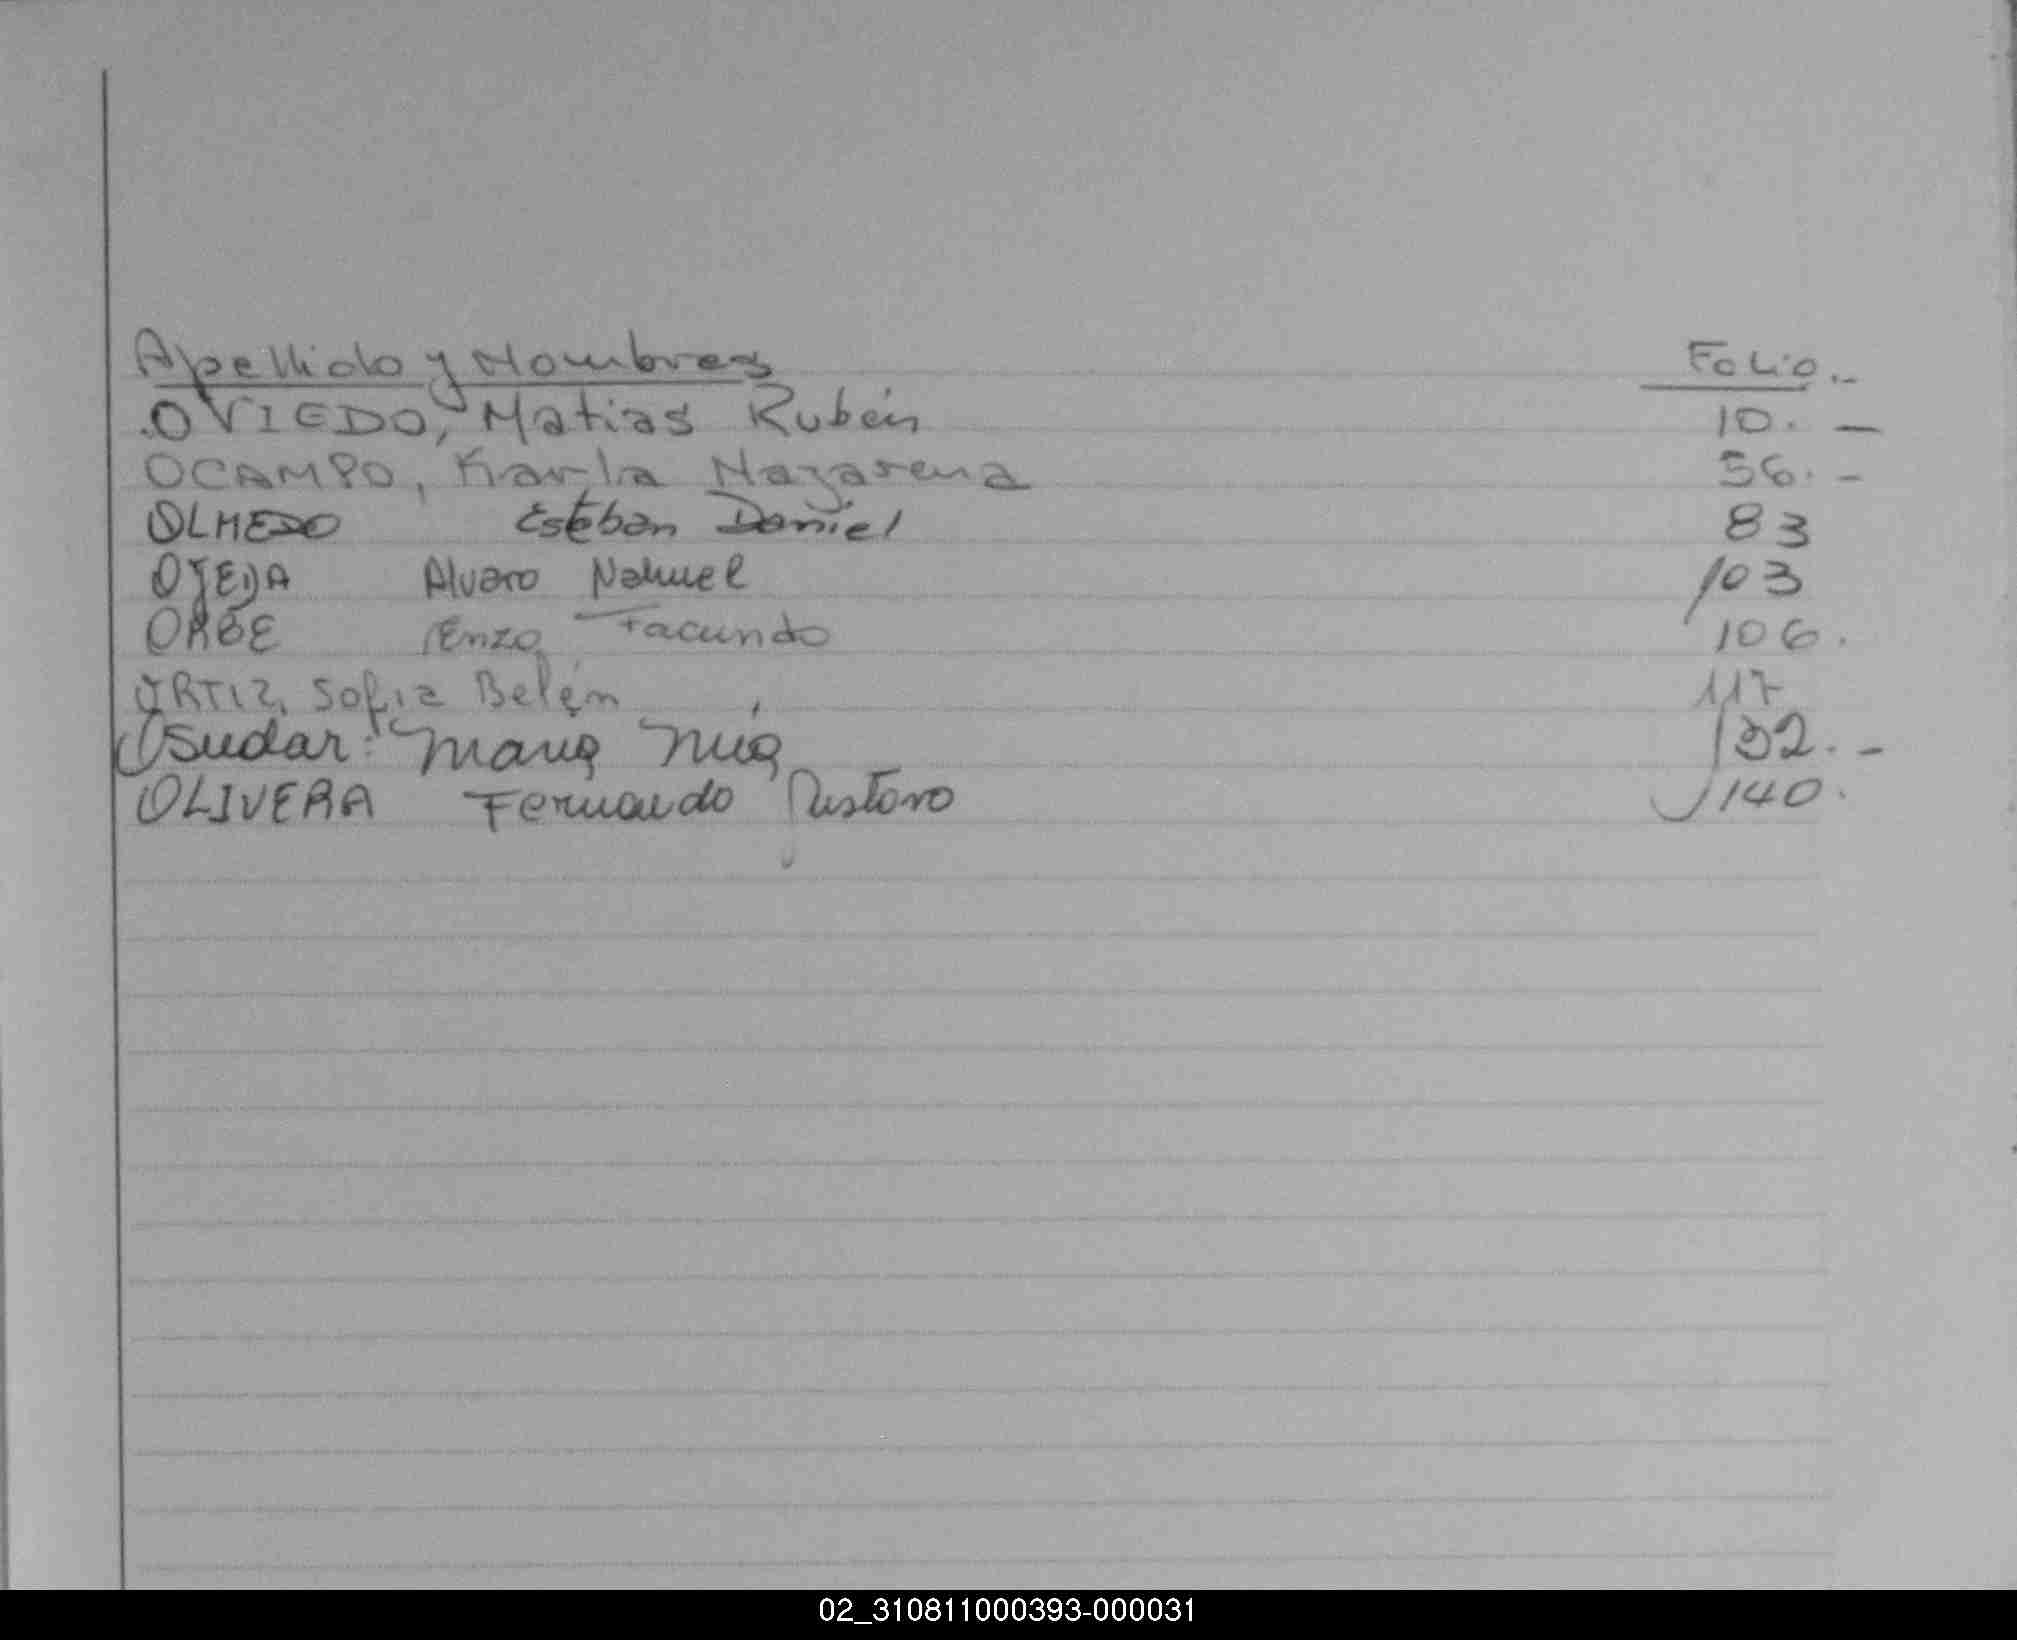 Apellido y Nombres Folio.-
.OVIEDO, Matias Rubén 10. -
OCAMPO, Karla Nazarena 56. -
OLMEDO Esteban Daniel 83
OJEDA Alvaro Nahuel 103
ORBE Enzo Facundo 106.
ORTIZ, Sofia Belém 117
Osudar: María Mía 132. -
OLIVERA Fernando Gustavo 140.
02_310811000393-000031